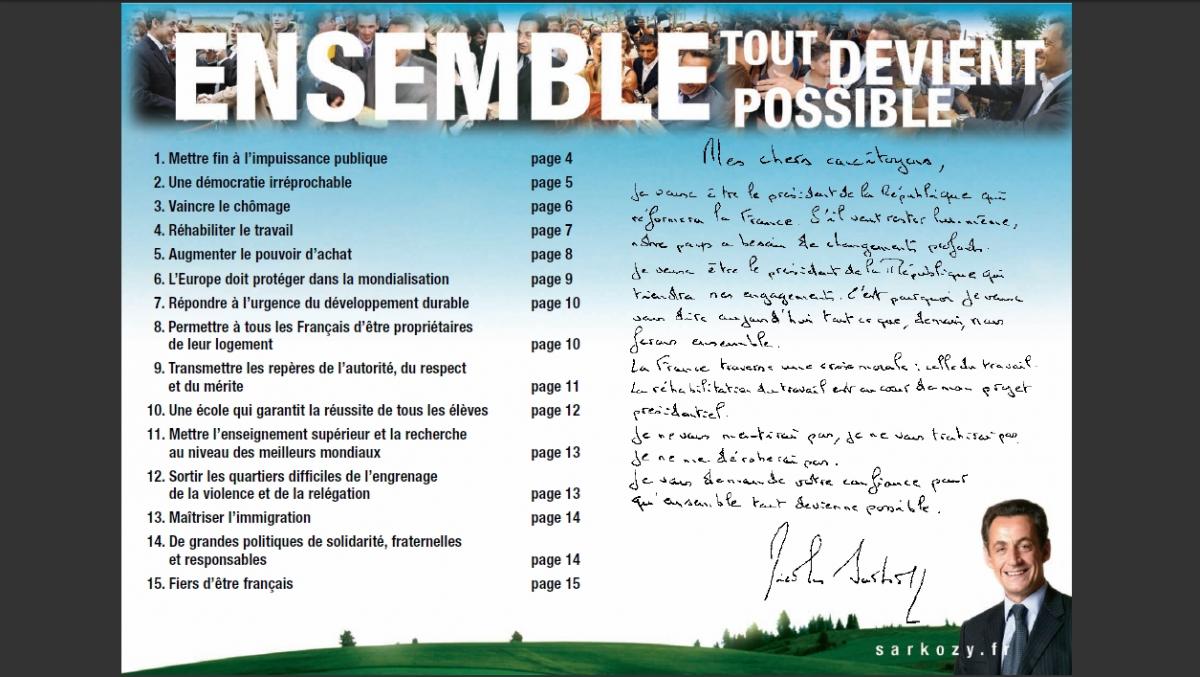 ENSEMBLE TOUT DEVIENT
POSSIBLE
1. Mettre fin à l'impuissance publique page 4
2. Une démocratie irréprochable page 5
3. Vaincre le chômage page 6
4. Réhabiliter le travail page 7
5. Augmenter le pouvoir d'achat page 8
6. L'Europe doit protéger dans la mondialisation page 9
7. Répondre à l'urgence du développement durable page 10
8. Permettre à tous les Français d'être propriétaires
de leur logement page 10
9. Transmettre les repères de l'autorité, du respect
et du mérite page 11
10. Une école qui garantit la réussite de tous les élèves page 12
11. Mettre l'enseignement supérieur et la recherche
au niveau des meilleurs mondiaux page 13
12. Sortir les quartiers difficiles de l'engrenage
de la violence et de la relégation page 13
13. Maîtriser l'immigration page 14
14. De grandes politiques de solidarité, fraternelles
et responsables page 14
15. Fiers d'être français page 15
Mes chers concitoyens,
Je veux être le président de la République qui
réformera la France. S'il veut rester lui-même,
notre pays a besoin de changements profonds.
Je veux être le président de la République qui
tiendra ses engagements. C'est pourquoi je veux
vous dire aujourd'hui tout ce que, demain, nous
ferons ensemble.
La France traverse une crise morale : celle du travail.
La réhabilitation du travail est au cœur de mon projet
présidentiel.
Je ne vous mentirai pas, je ne vous trahirai pas.
Je ne me déroberai pas.
Je vous demande votre confiance pour
qu'ensemble tout devienne possible.
Nicolas Sarkozy
sarkozy.fr